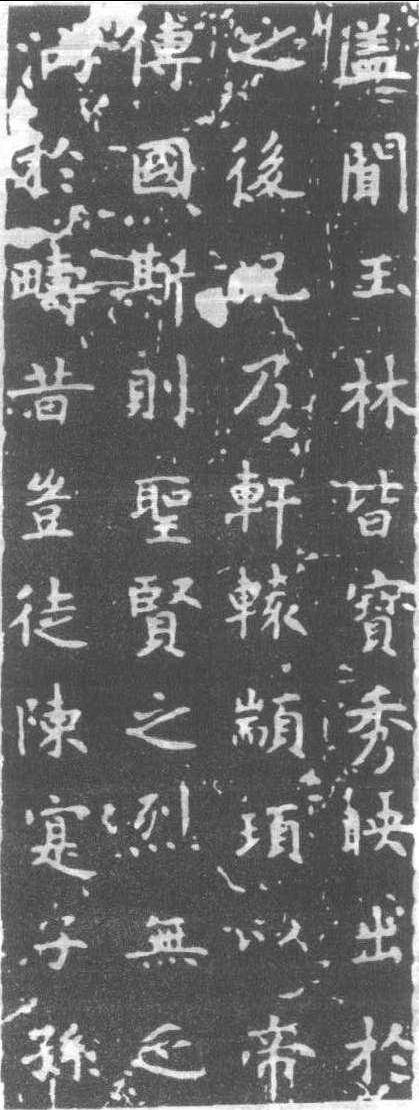 盖聞玉林皆寶秀映出於
之後況乃軒轅顓頊以帝
傳國斯則聖賢之烈無乏
於疇昔豈徒陳寔子孫